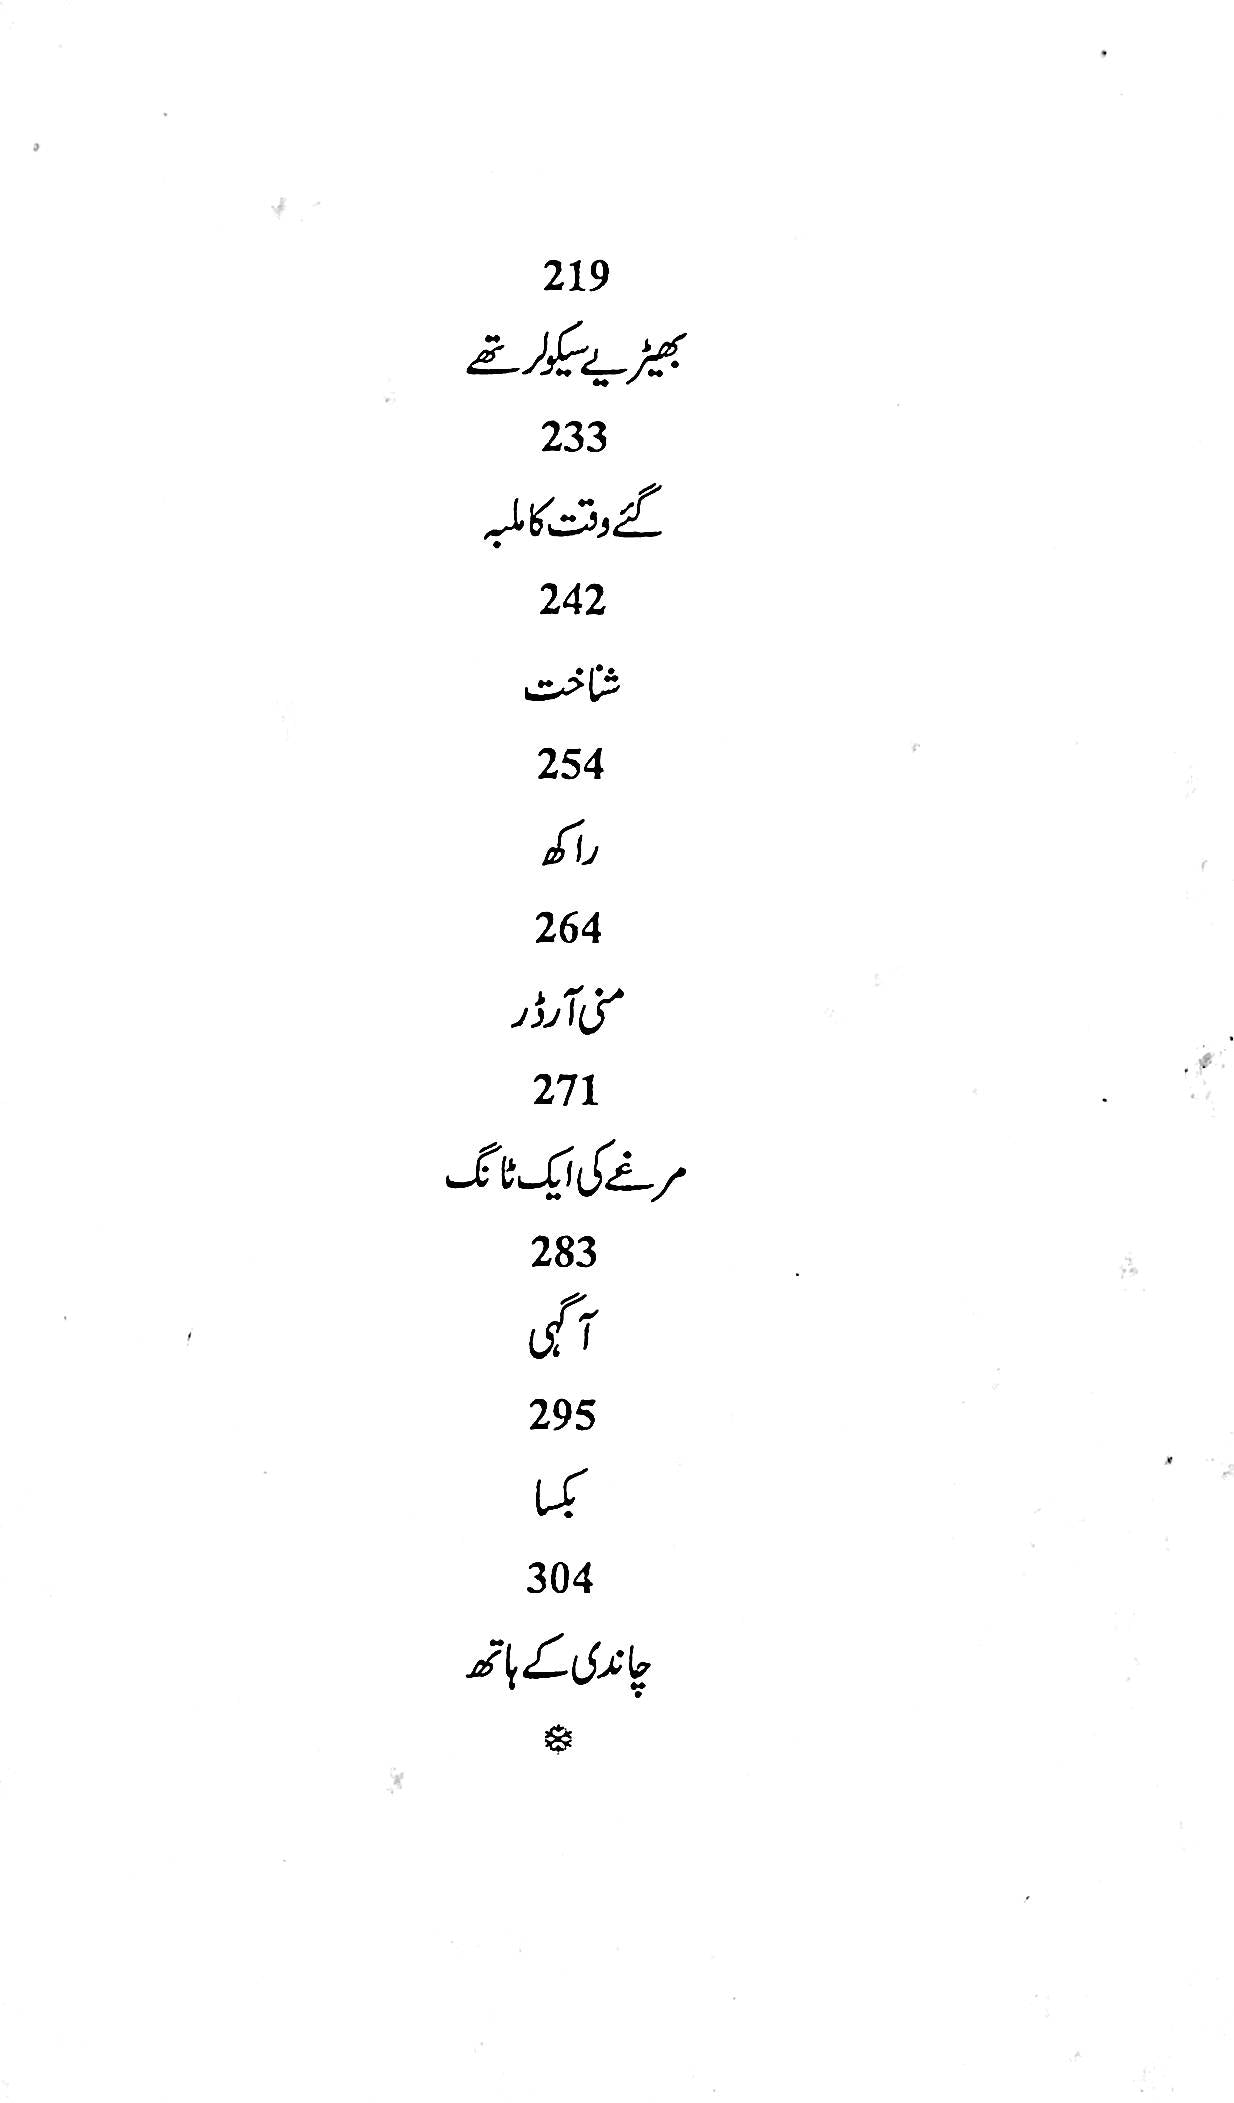 219
بھیڑیے سیکولر تھے
233
گئے وقت کا ملبہ
242
شناخت
254
راکھ
264
منی آرڈر
271
مرغے کی ایک ٹانگ
283
آگہی
295
بکسا
304
چاندی کے ہاتھ